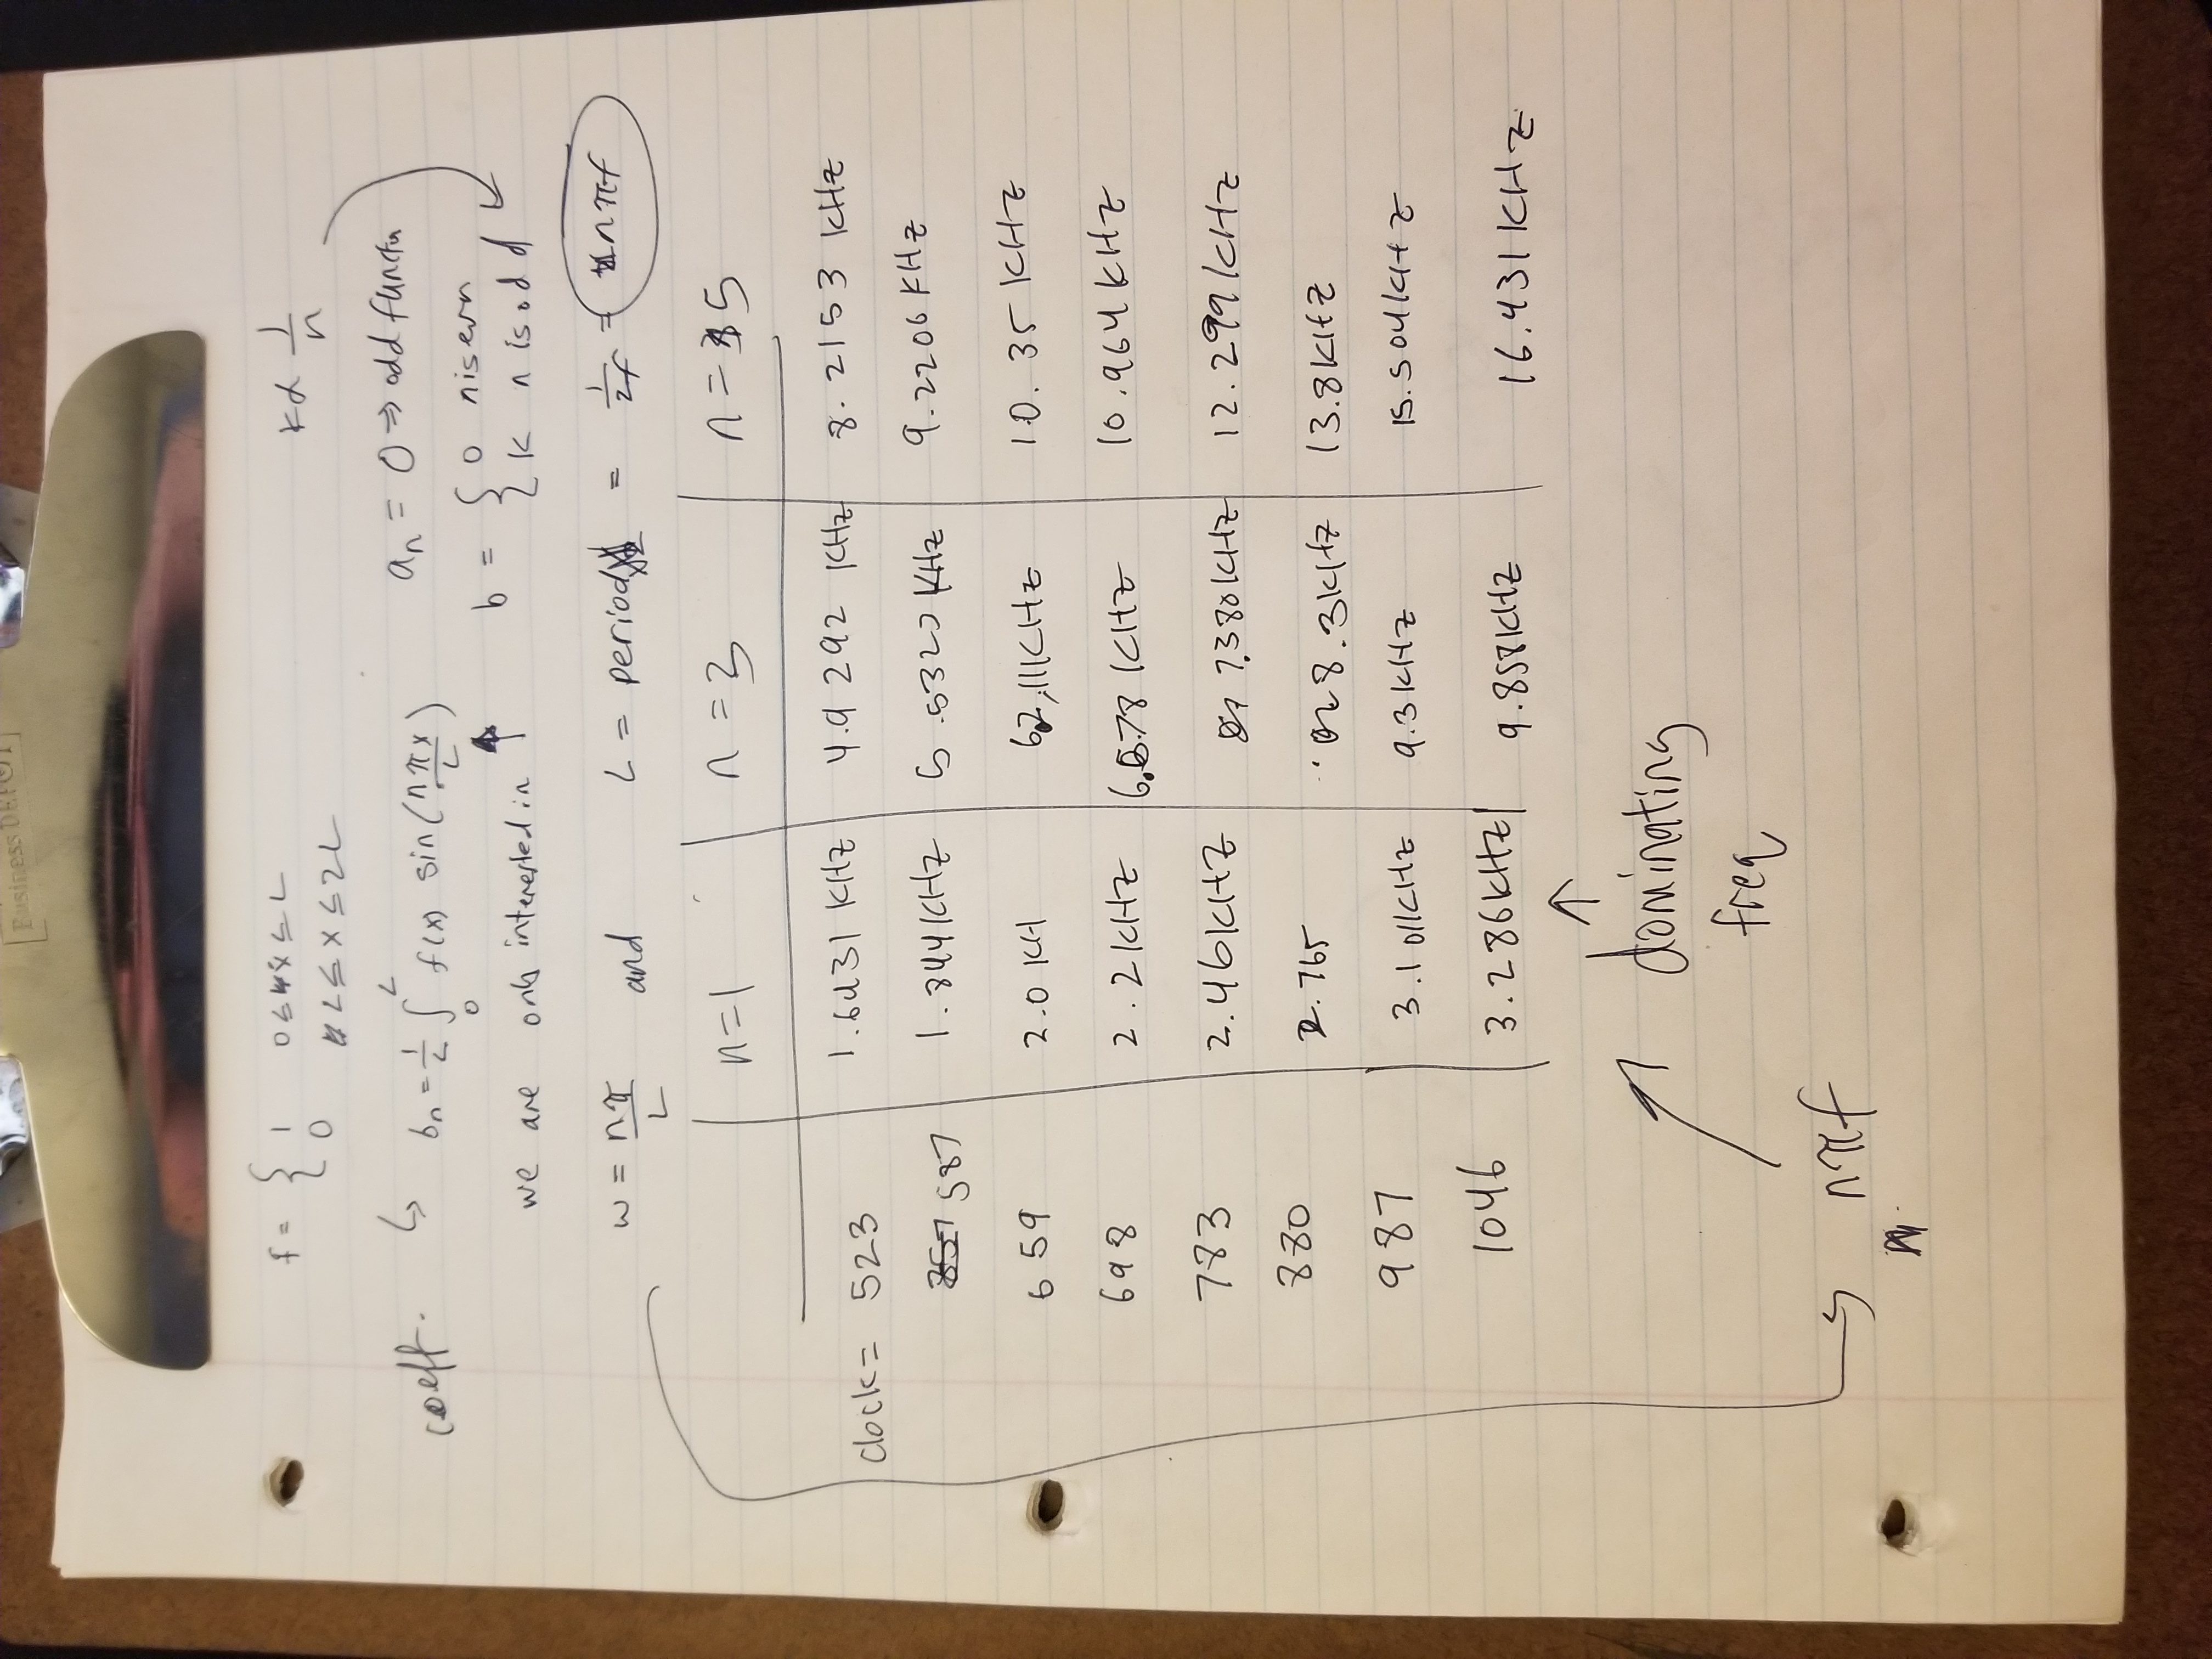 Business DEPOT
f = { 1 0 ≤ x ≤ L
0 L ≤ x ≤ 2L
k ∝ 1/n
coeff. ↳ bn = 1/L ∫₀ᴸ f(x) sin(nπx/L)
an = 0 ⇒ odd functn
b = { 0 n is evn
k n is odd
we are only interested in ↑
w = nπ/L and L = period = 1/2f = nπf
n=1 n=3 n=5
clock = 523 1.6431 KHz 4.9292 KHz 8.2153 KHz
587 1.844 KHz 5.532 KHz 9.2206 KHz
659 2.0 KH 62,11 KHz 10.35 KHz
698 2.2 KHz 6.578 KHz 10.964 KHz
783 2.46 KHz 7.380 KHz 12.299 KHz
880 2.765 8.3 KHz 13.8 KHz
987 3.101 KHz 9.3 KHz 15.504 KHz
1046 3.286 KHz 9.858 KHz 16.431 KHz
↑
dominating
freq
nπf